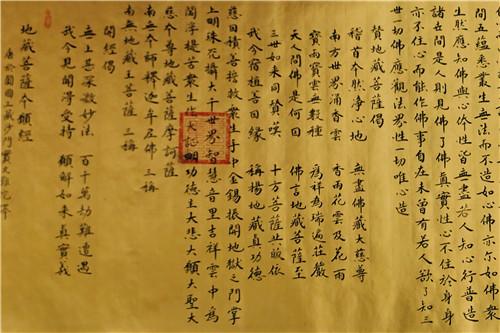 間五蘊悉叢生無法而不造如心佛亦尔如佛衆
生然應知佛與心体性皆無盡若人知心行普造
諸世間是人則見佛了佛真實性心不住於身身
亦不住心而能作佛事自在未曾有若人欲了知三
世一切佛應觀法界性一切唯心造
贊地藏菩薩偈
稽首本然淨心地 無盡佛藏大慈尊
南方世界涌香雲 香雨花雲及花雨
寶雨寶雲無數種 為祥為瑞遍莊嚴
天人問佛是何因 佛言地藏菩薩至
三世如來同贊嘆 十方菩薩共皈依
我今宿植善因緣 稱揚地藏真功德
慈因積善誓救衆生手中金錫振開地獄之門掌
上明珠光攝大千世界智慧音里吉祥雲中為
閻浮提苦衆生作大証明功德主大悲大願大聖大
慈本尊地藏菩薩摩訶薩
南無本師釋迦牟尼佛 三稱
南無地藏王菩薩 三稱
開經偈
無上甚深微妙法 百千萬劫難遭遇
我今見聞得受持 願解如來真實義
地藏菩薩本願經
唐于闐國三藏沙門實叉難陀譯